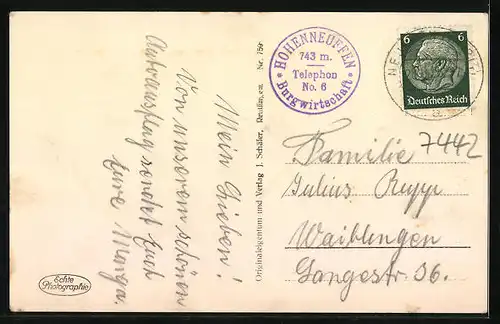 Meine Lieben!
Von unserem schönen
Autoausflug sendet Euch
Eure Marga.
Echte
Photographie
Originaleigentum und Verlag J. Schäfer, Reutlingen Nr. 759
HOHENNEUFFEN
743 m.
Telephon
No. 6
Burgwirtschaft
6 6
Deutsches Reich
7442
Familie
Julius Rupp
Waiblingen
Langestr. 36.